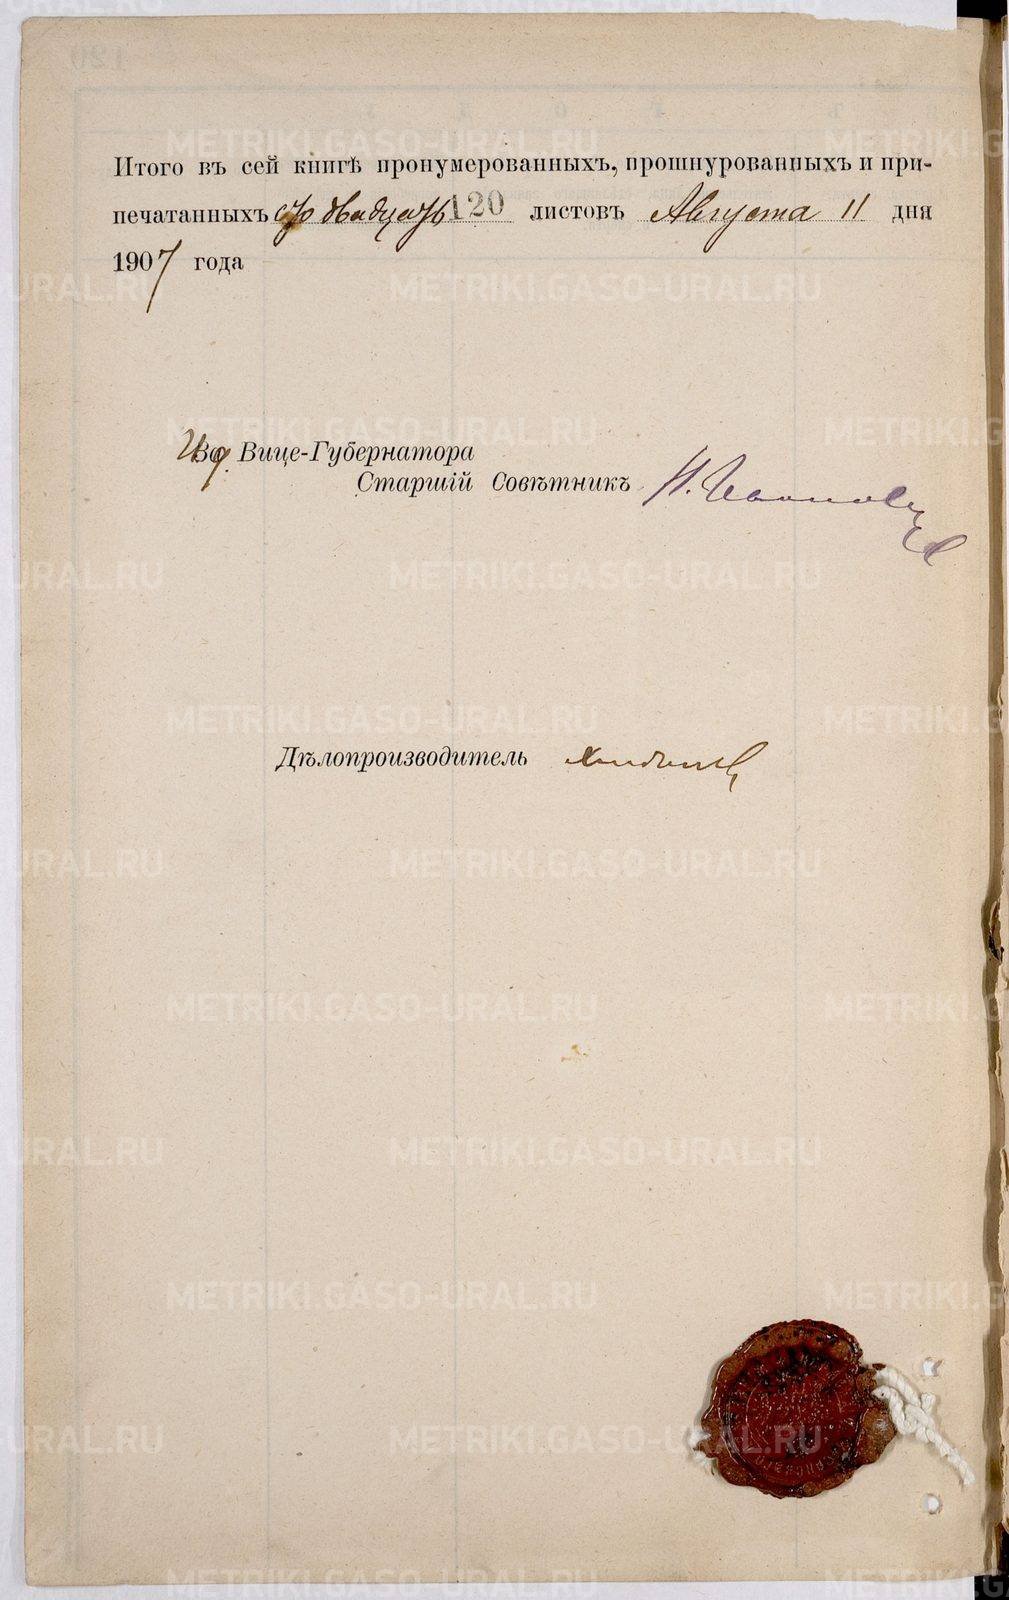 Итого въ сей книгѣ пронумерованныхъ, прошнурованныхъ и при-
печатанныхъ сто двадцать 120 листовъ Августа 11 дня
1907 года
И.д. Вице-Губернатора
Старшій Совѣтникъ Н.
Дѣлопроизводитель
METRIKI.GASO-URAL.RU